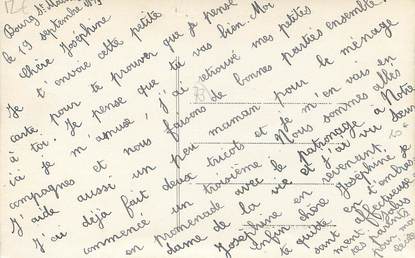 Bourg St. Maurice
le 19 septembre
Chère Joséphine
Je t'envoie cette petite
carte pour te prouver que je pense
à toi. Je pense que tu vas bien. Moi
ici je m'amuse, j'ai retrouvé mes petites
compagnes et nous faisons de bonnes parties ensemble.
J'aide aussi un peu maman pour le ménage
J'ai déjà fait deux tricots et je m'en vais en
commencé un troisième. Nous sommes allés
en promenade avec le patronage à Notre
dame de la vie et j'ai vu des
Joséphine en revenant.
Enfin chère Joséphine je
te quitte en t'embrassant
affectueusement